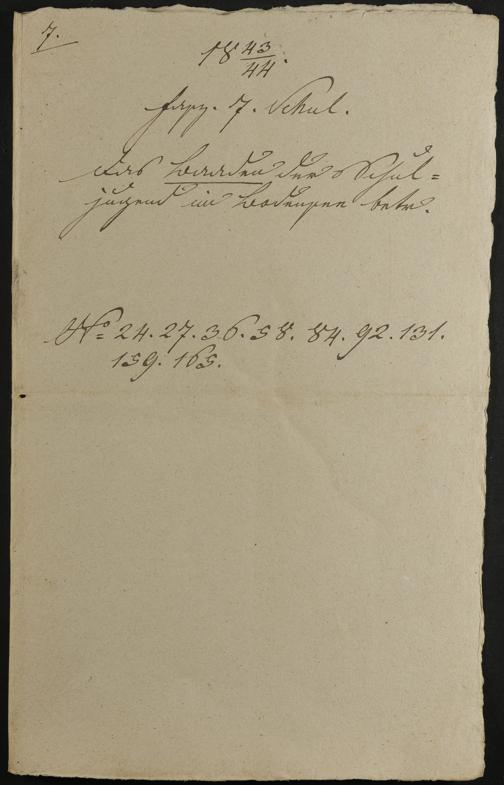 7.
18 43/44.
Fasz. 7. Schul.
Das Baaden der Schul=
jugend im Bodensee betr.
No= 24. 27. 36. 58. 84. 92. 131.
159. 165.